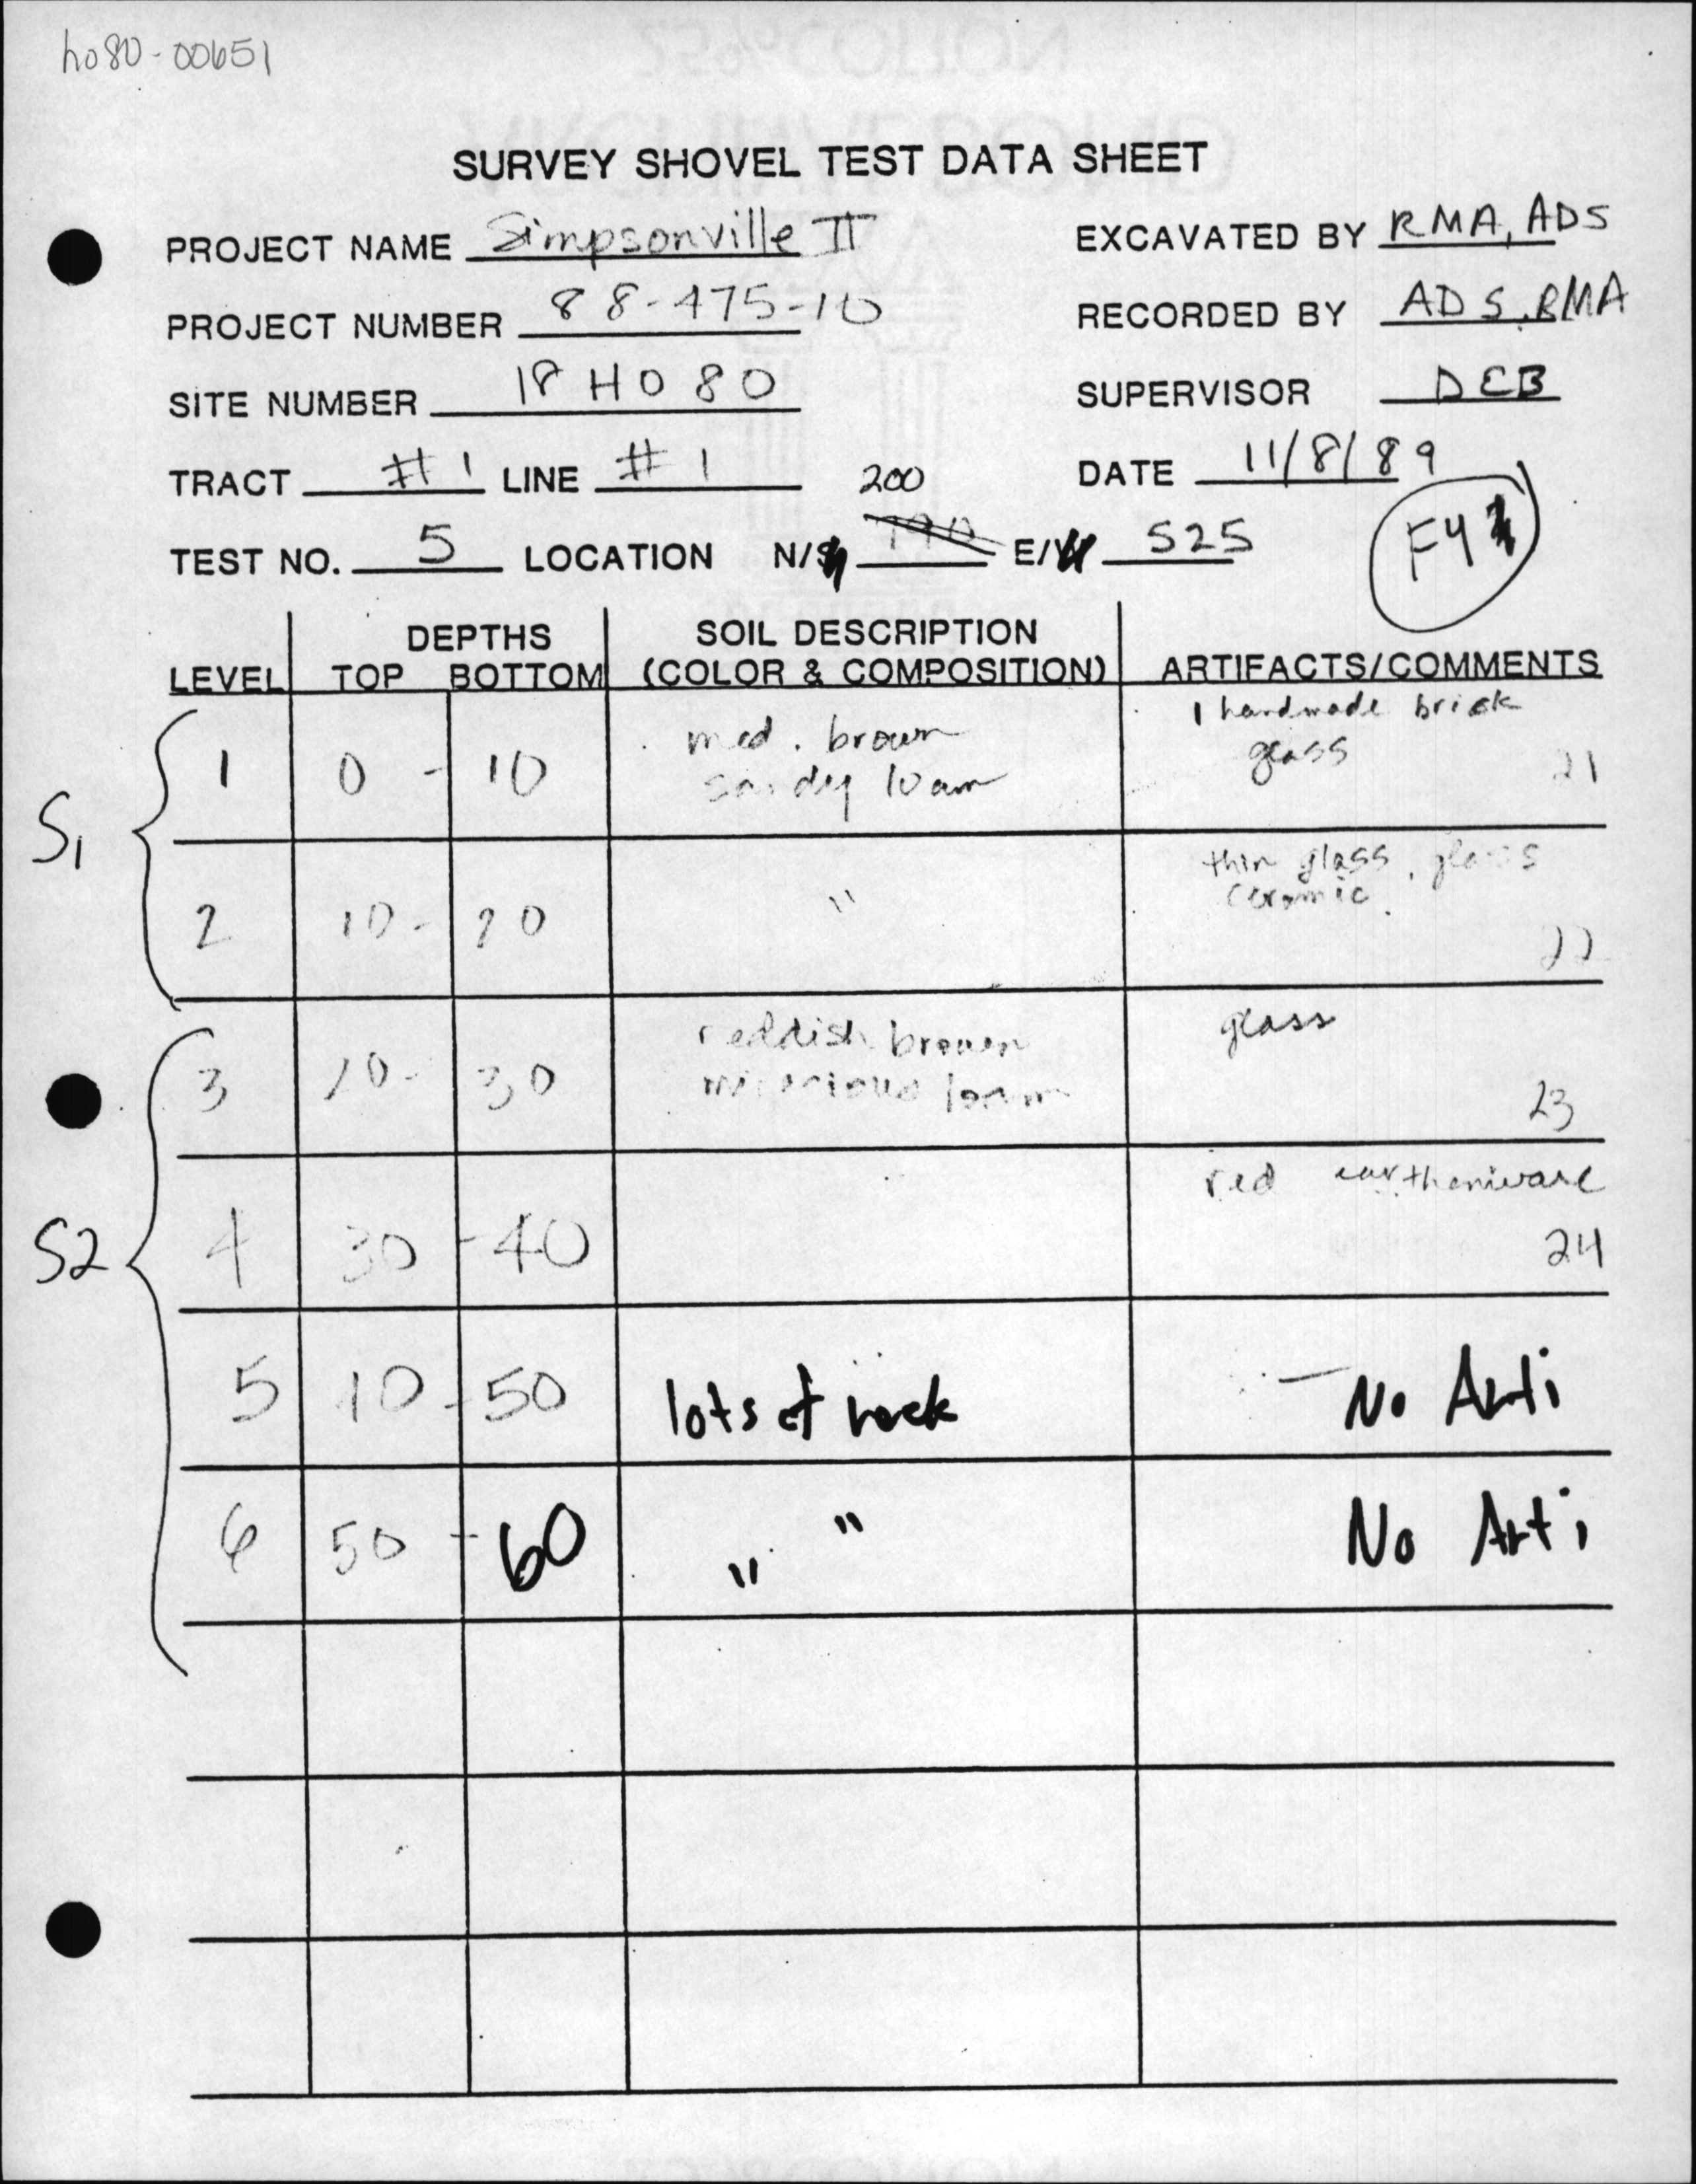 ho80-00651
SURVEY SHOVEL TEST DATA SHEET
PROJECT NAME Simpsonville II EXCAVATED BY RMA, ADS
PROJECT NUMBER 88-475-10 RECORDED BY ADS, RMA
SITE NUMBER 18 HO 80 SUPERVISOR DEB
TRACT #1 LINE #1 200 DATE 11/8/89
TEST NO. 5 LOCATION N/S 190 E/W 525 F4
DEPTHS SOIL DESCRIPTION
LEVEL TOP BOTTOM (COLOR & COMPOSITION) ARTIFACTS/COMMENTS
1 handmade brick
med. brown glass
S1 1 0 - 10 sandy loam 21
thin glass, glass
ceramic
2 10 - 20 " 22
reddish brown glass
3 20 - 30 micacious loam 23
red earthenware
S2 4 30 - 40 24
5 40 - 50 lots of rock - No Arti
6 50 - 60 " " No Arti